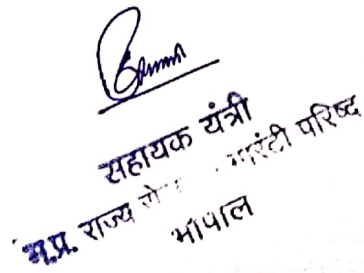 सहायक यंत्री
म.प्र. राज्य गारंटी परिषद
भोपाल